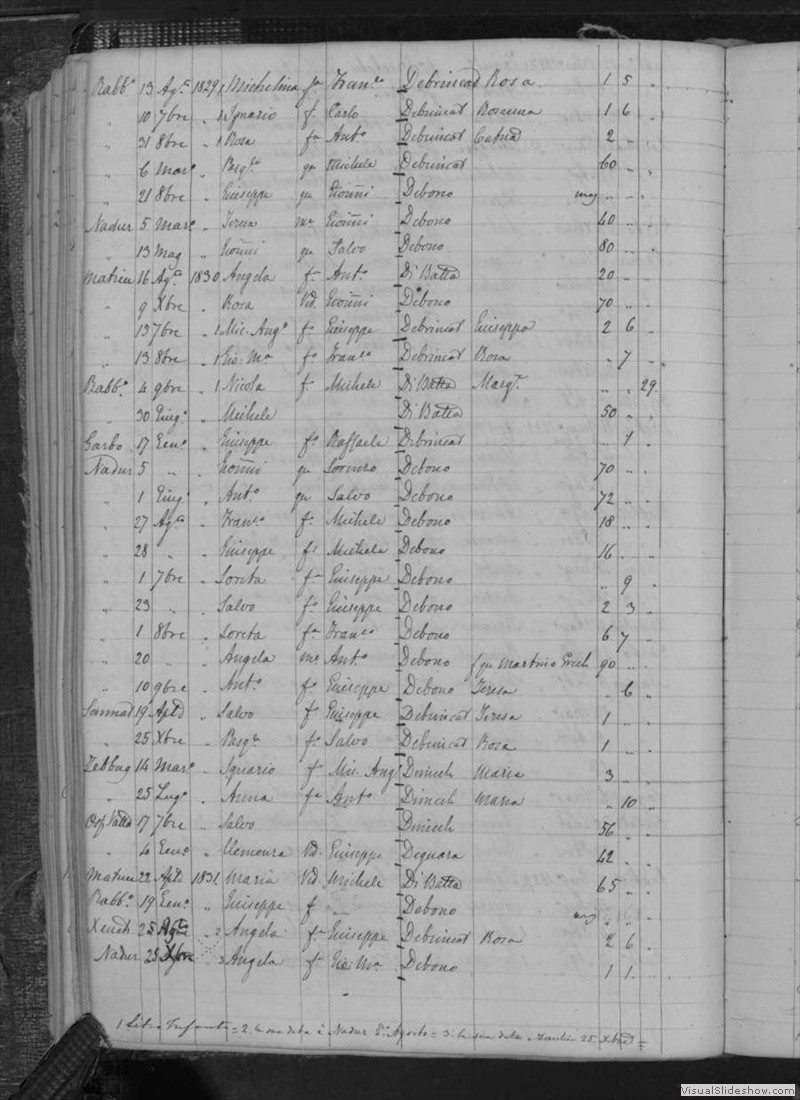 Rabbo 13 Agto 1829 1 Michelina fa Franco Debrincat Rosa 1 5 "
" 10 7bre " Ignazio fo Carlo Debrincat Rosanna 1 6
" 31 8bre " 1 Rosa fa Anto Debrincat 2 " "
" 6 Marzo " Pasqle qm Michele Debrincat 60 " "
" 21 8bre " Giuseppe qm Giovñi Debono " " "
Nadur 5 Marzo " Teresa Giovñi Debono 40 " "
" 13 Mag " Giovñi qm Salvo Debono 80 " "
16 Agto 1830 Angela fa Anto Di Batta 20 " "
" 9 Xbre " Rosa Vid. Giovñi Debono 70 " "
" 13 7bre " 1 Mic. Ango fo Giuseppe Debrincat Giuseppa 2 6 "
" 13 8bre " 1 Gio. Ma fo Franco Debrincat Rosa " 7 "
Rabbo 4 9bre " 1 Nicola f Michele Di Batta Margta " " 29
" 30 Giugo " Michele Di Batta 50 " "
Garbo 17 Geno " Giuseppe fo Raffaele Debrincat "
Nadur 5 " " Giovñi qm Lorenzo Debono 70 " "
" 1 Giugo " Anto qm Salvo Debono 72 " "
" 27 Agto " Franco fo Michele Debono 18 " "
" 28 " " Giuseppe fo Michele Debono 16 " "
" 1 7bre " Loreta fa Giuseppe Debono " 9 "
" 23 " " Salvo fo Giuseppe Debono 2 3 "
" 1 8bre " Loreta fa Franco Debono 6 7 "
" 20 " " Angela Anto Debono qm Martino 90 " "
" 10 9bre " Anto fo Giuseppe Debono Teresa " 6 "
Sannat 19 " Salvo f Giuseppe Debrincat Teresa 1 " "
" 25 Xbre " Pasqle fo Salvo Debrincat Rosa 1 " "
Zebbug 14 Marzo " Ignazio f Mic. Ango Dimech Maria 3 " "
" 25 Lugo " Anna fa Anto Dimech Maria " 10 "
17 7bre " Salvo Dimech 56 " "
" 4 Geno " Vid. Giuseppe Deguara 42 " "
22 1831 Maria Vid. Michele Di Batta 65 " "
Rabbo 19 Geno " Giuseppe f Debono " " "
25 Agto 2 Angela fa Giuseppe Debrincat Rosa 2 6 "
Nadur 25 Xbre 3 Angela f Gio. Ma Debono 1 1 "
1 Libro = 2. la sua data è Nadur Agosto = 3. la sua data è 25 Xbre =
VisualSlideshow.com